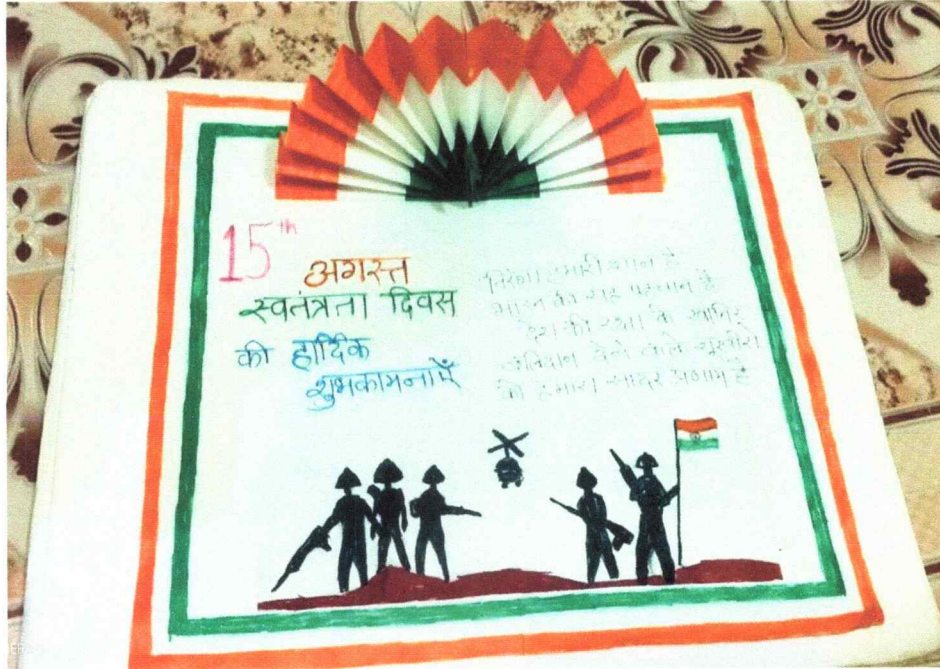 15th
अगस्त
स्वतंत्रता दिवस
की हार्दिक
शुभकामनाएँ
तिरंगा हमारी शान है
भारत की यह पहचान है
देश की रक्षा के खातिर
बलिदान देने वाले शूरवीरो
को हमारा सादर प्रणाम है